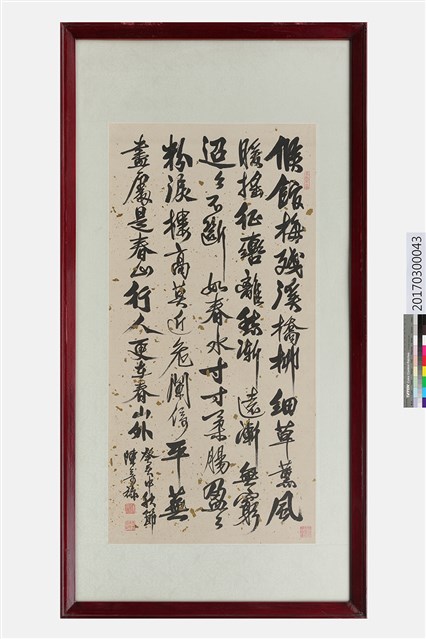 候館梅残溪橋柳細草薰風
暖搖征轡離愁漸遠漸無窮
迢々不斷如春水寸寸柔腸盈々
粉淚樓高莫近危闌倚平蕪
盡處是春山行人更在春山外
癸亥中秋節
陳
20170300043